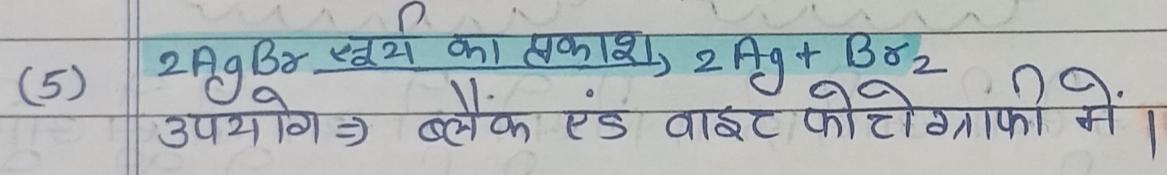 (5) 2AgBr सूर्य का प्रकाश, 2Ag + Br2
उपयोग ⇒ ब्लैक एंड वाइट फोटोग्राफी में।